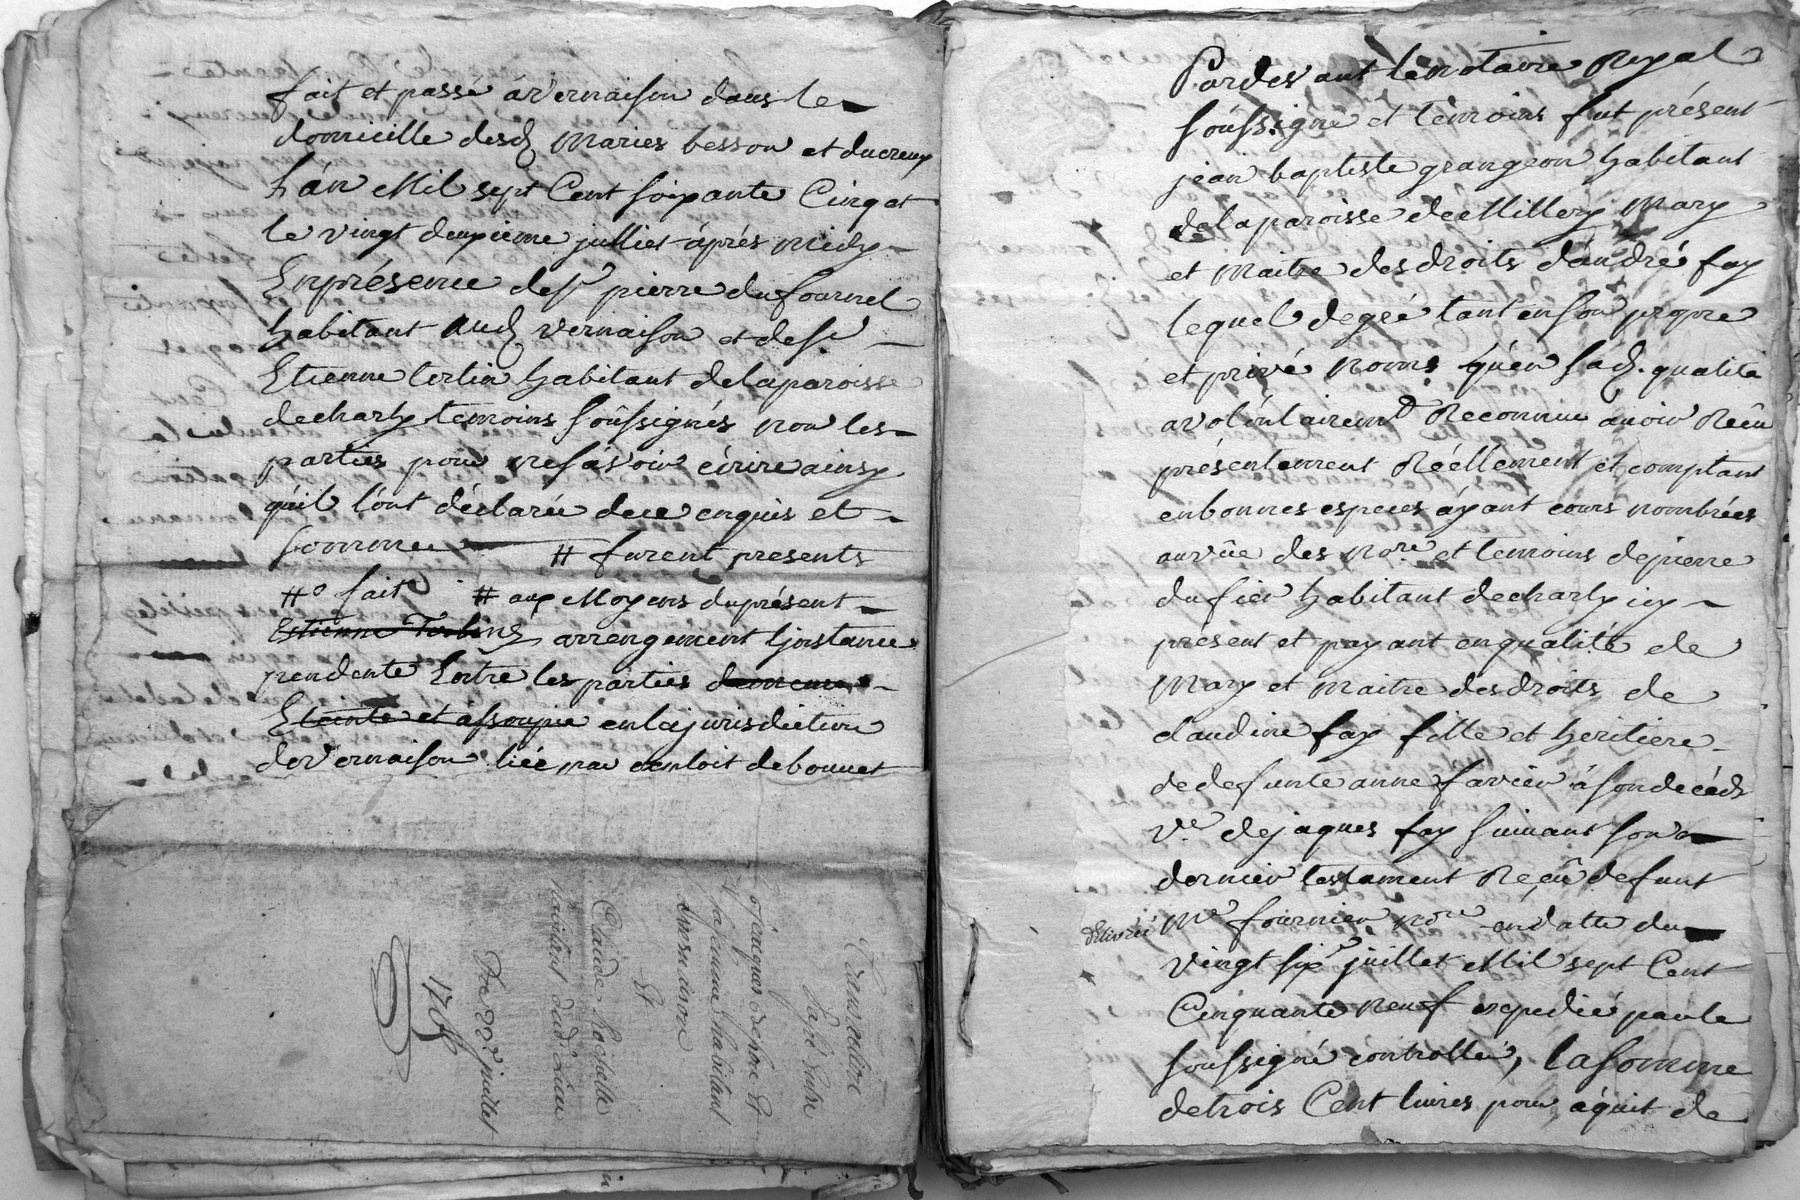 fait et passé à vernaison dans le
domicille desd. Maries besson et ducreux
L'án Mil sept Cent soixante Cinq et
le vingt deuxieme julliet áprés midy
En présence de sr. pierre dufournel
habitant aud. vernaison et de sr.
Etienne terlin habitant delaparoisse
de charly temoins soussignés non les
parties pour ne sávoir écrire ainsy
qu'il l'ont déclarée de ce enquis et
sommee # furent presents
#° fait # aux Moyens duprésent
Estienne Terlin arrengement L'instance
pendente Entre les parties demeure
Eteinte et assoupie en la jurisdiction
de vernaison liée par exploit de bonnet
Transaction
Passé Entre
jeacques besson Et
sa femme habitant
a vernaison
Et
Claude
habitant dud. Lieu
Du 22e juillet
1765
Pardevant le notaire Royal
soussigné et temoins fut présent
jean baptiste grangeon habitant
de la paroisse de Millery Mary
et Maitre des droits d'andré fay
lequel de gré tant en son propre
et privé noms qu'en sad. qualité
a volontairemt. Reconnu avoir Reçu
présentement Réellement et comptant
en bonnes especes áyant cours nombrées
au vûe des nore. et temoins de pierre
dufier habitant de charly icy
présent et payant en qualité de
Mary et Maitre des droits de
claudine fay fille et heritiere
de defunte anne favier á son decéds
Ve. de jaques fay suivant son
dernier testament Reçû defunt
délivrée
Me. fournier nore. en datte du
vingt six juillet Mil sept Cent
Cinquante neuf expedié par le
soussigné controllé, la somme
de trois Cent livres pour áquit de